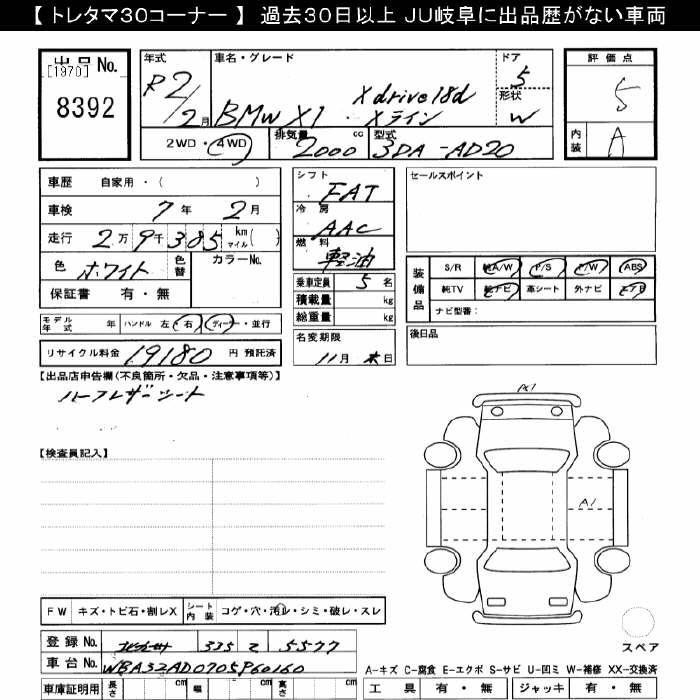 【 トレタマ30コーナー 】 過去30日以上 JU岐阜に出品歴がない車両
出品 No.
[1970]
8392
年式 R2/2月
車名・グレード BMW X1 Xdrive18d Xライン
ドア 5
形状 W
2WD・4WD 排気量 2000 cc 型式 3DA-AD20
評価点 5
内装 A
車歴 自家用・( )
車検 7年 2月
走行 2万9千385 km マイル( )
色 ホワイト 色替 カラーNo.
保証書 有・無
シフト FAT
冷房 AAC
燃料 軽油
乗車定員 5 名
積載量 kg
総重量 kg
名変期限 11月末日
セールスポイント
装備品 S/R 純A/W P/S P/W ABS
純TV 純ナビ 革シート 外ナビ エアB
ナビ型番:
後日品
モデル年式 年 ハンドル 左・右 ディーラー・並行
リサイクル料金 19180 円 預託済
【出品店申告欄(不良箇所・欠品・注意事項等)】
ハーフレザーシート
【検査員記入】
A1
A1
FW キズ・トビ石・割レX シート内装 コゲ・穴・汚レ・シミ・破レ・スレ
登録 No. 335 5577
車台 No. WBA32AD0705P60160
車庫証明用 長さ cm 幅 cm 高さ cm
スペア
A-キズ C-腐食 E-エクボ S-サビ U-凹ミ W-補修 XX-交換済
工具 有・無 ジャッキ 有・無